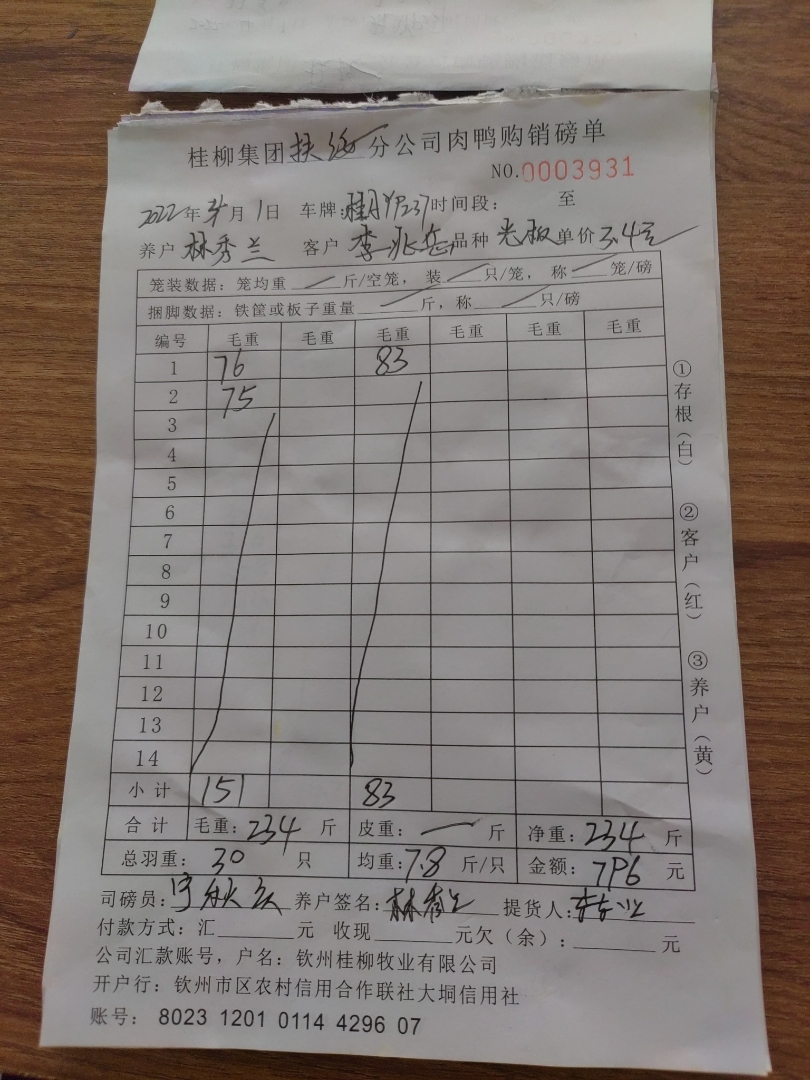 桂柳集团扶绥分公司肉鸭购销磅单
NO.0003931
2022年3月1日 车牌:桂 YP237 时间段: 至
养户 林秀兰 客户 李兆 品种 光板 单价 3.4元
笼装数据: 笼均重 斤/空笼, 装 只/笼, 称 笼/磅
捆脚数据: 铁筐或板子重量 斤, 称 只/磅
编号 毛重 毛重 毛重 毛重 毛重 毛重
1 76 83
2 75
3
4
5
6
7
8
9
10
11
12
13
14
小计 151 83
合计 毛重: 234 斤 皮重: 一 斤 净重: 234 斤
总羽重: 30 只 均重: 7.8 斤/只 金额: 796 元
司磅员: 养户签名: 林秀兰 提货人:
付款方式: 汇 元 收现 元欠(余): 元
公司汇款账号, 户名: 钦州桂柳牧业有限公司
开户行: 钦州市区农村信用合作联社大垌信用社
账号: 8023 1201 0114 4296 07
①存根(白) ②客户(红) ③养户(黄)